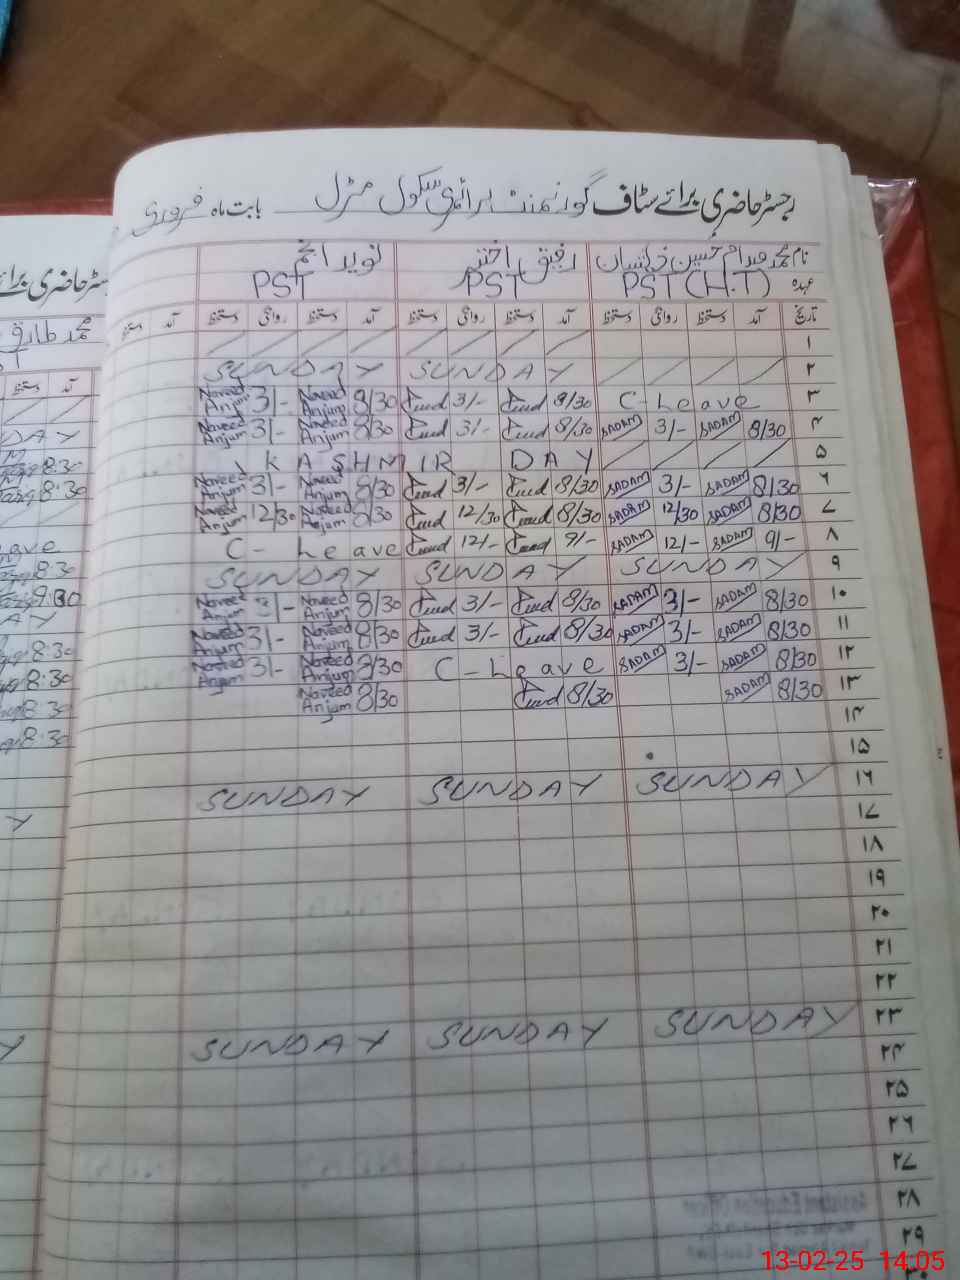 رجسٹر حاضری برائے سٹاف گورنمنٹ پرائمری سکول مٹرل بابت ماہ فروری
نام محمد صدام حسین خراسان رفیق اختر نوید انجم
عہدہ PST (H.T) PST PST
تاریخ آمد دستخط روانگی دستخط آمد دستخط روانگی دستخط آمد دستخط روانگی دستخط آمد دستخط
۱
۲ SUNDAY SUNDAY
۳ C-Leave 8/30 3/- 8/30 Naveed Anjum 3/- Naveed Anjum
۴ 8/30 SADAM 3/- SADAM 8/30 3/- 8/30 Naveed Anjum 3/- Naveed Anjum
۵ KASHMIR DAY
۶ 8/30 SADAM 3/- SADAM 8/30 3/- 8/30 Naveed Anjum 3/- Naveed Anjum
۷ 8/30 SADAM 12/30 SADAM 8/30 12/30 8/30 Naveed Anjum 12/30 Naveed Anjum
۸ 9/- SADAM 12/- SADAM 9/- 12/- C-Leave
۹ SUNDAY SUNDAY SUNDAY
۱۰ 8/30 SADAM 3/- SADAM 8/30 3/- 8/30 Naveed Anjum 3/- Naveed Anjum
۱۱ 8/30 SADAM 3/- SADAM 8/30 3/- 8/30 Naveed Anjum 3/- Naveed Anjum
۱۲ 8/30 SADAM 3/- SADAM C-Leave 8/30 Naveed Anjum 3/- Naveed Anjum
۱۳ 8/30 SADAM 8/30 8/30 Naveed Anjum
۱۴
۱۵
۱۶ SUNDAY SUNDAY SUNDAY
۱۷
۱۸
۱۹
۲۰
۲۱
۲۲
۲۳ SUNDAY SUNDAY SUNDAY
۲۴
۲۵
۲۶
۲۷
۲۸
۲۹
۳۰
محمد طارق
آمد دستخط
DAY
8:30
8:30
eave
8:30
9:00
AY
8:30
8:30
8:30
8:30
Y
Y
13-02-25 14:05